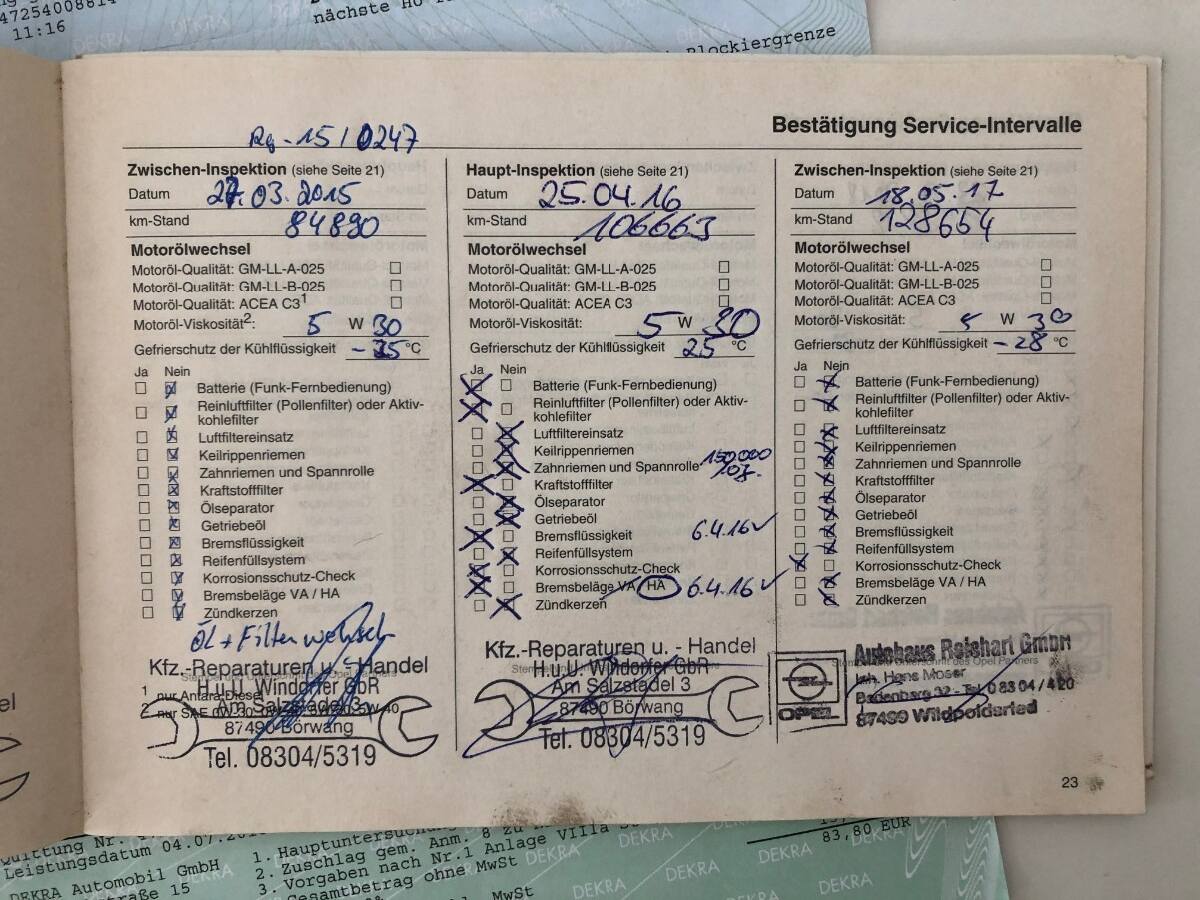 47254008814
11:16
nächste HU
Blockiergrenze
DEKRA
Bestätigung Service-Intervalle
Rg-15/0247
Zwischen-Inspektion (siehe Seite 21)
Datum 27.03.2015
km-Stand 84890
Motorölwechsel
Motoröl-Qualität: GM-LL-A-025
Motoröl-Qualität: GM-LL-B-025
Motoröl-Qualität: ACEA C3¹
Motoröl-Viskosität²: 5 W 30
Gefrierschutz der Kühlflüssigkeit °C
Ja Nein
Batterie (Funk-Fernbedienung)
Reinluftfilter (Pollenfilter) oder Aktiv-
kohlefilter
Luftfiltereinsatz
Keilrippenriemen
Zahnriemen und Spannrolle
Kraftstofffilter
Ölseparator
Getriebeöl
Bremsflüssigkeit
Reifenfüllsystem
Korrosionsschutz-Check
Bremsbeläge VA / HA
Zündkerzen
Öl + Filter
Kfz.-Reparaturen u. - Handel
H.u.U. Windorfer GbR
Am Salzstadel 3
87490 Börwang
Tel. 08304/5319
¹ nur Antara Diesel
² nur SAE
Haupt-Inspektion (siehe Seite 21)
Datum 25.04.16
km-Stand 106663
Motorölwechsel
Motoröl-Qualität: GM-LL-A-025
Motoröl-Qualität: GM-LL-B-025
Motoröl-Qualität: ACEA C3
Motoröl-Viskosität: 5 W 30
Gefrierschutz der Kühlflüssigkeit 25 °C
Ja Nein
Batterie (Funk-Fernbedienung)
Reinluftfilter (Pollenfilter) oder Aktiv-
kohlefilter
Luftfiltereinsatz
Keilrippenriemen
Zahnriemen und Spannrolle 150000
10J.
Kraftstofffilter
Ölseparator
Getriebeöl
Bremsflüssigkeit 6.4.16 ✓
Reifenfüllsystem
Korrosionsschutz-Check
Bremsbeläge VA / HA 6.4.16 ✓
Zündkerzen
Kfz.-Reparaturen u. - Handel
H.u.U. Windorfer GbR
Am Salzstadel 3
87490 Börwang
Tel. 08304/5319
Zwischen-Inspektion (siehe Seite 21)
Datum 18.05.17
km-Stand 128654
Motorölwechsel
Motoröl-Qualität: GM-LL-A-025
Motoröl-Qualität: GM-LL-B-025
Motoröl-Qualität: ACEA C3
Motoröl-Viskosität: 5 W 30
Gefrierschutz der Kühlflüssigkeit -28 °C
Ja Nein
Batterie (Funk-Fernbedienung)
Reinluftfilter (Pollenfilter) oder Aktiv-
kohlefilter
Luftfiltereinsatz
Keilrippenriemen
Zahnriemen und Spannrolle
Kraftstofffilter
Ölseparator
Getriebeöl
Bremsflüssigkeit
Reifenfüllsystem
Korrosionsschutz-Check
Bremsbeläge VA / HA
Zündkerzen
OPEL
Autohaus Reichart GmbH
Inh. Hans Moser
Tel. 0 83 04 / 4 20
87499 Wildpoldsried
23
Quittung Nr.
Leistungsdatum 04.07.
DEKRA Automobil GmbH
1. Hauptuntersuchung
2. Zuschlag gem. Anm. 8 zu
3. Vorgaben nach Nr.1 Anlage VIIIa
Gesamtbetrag ohne MwSt
MwSt
83,80 EUR
DEKRA